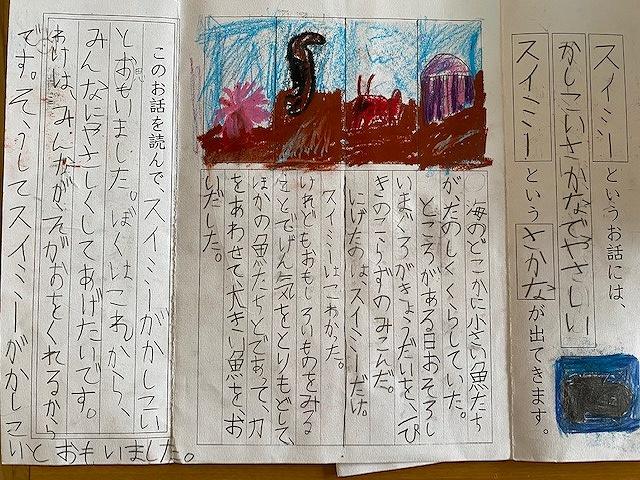 スイミーというお話には、
かしこいさかなでやさしい
スイミーというさかなが出てきます。
海のどこかに小さい魚たち
がたのしくくらしていた。
ところがある日おそろし
いまぐろがきょうだいを、一ぴ
きのこらずのみこんだ。
にげたのはスイミーだけ。
スイミーはこわかった。
けれどもおもしろいものをみる
ことでげん気をとりもどして、
ほかの魚たちとであって、力
をあわせて、大きい魚を、お
いだした。
このお話を読んで、スイミーがかしこい
とおもいました。ぼくはこれから、
みんなにやさしくしてあげたいです。
わけは、みんなが、えがおをくれるから
です。そうしてスイミーがかしこ
いとおもいました。